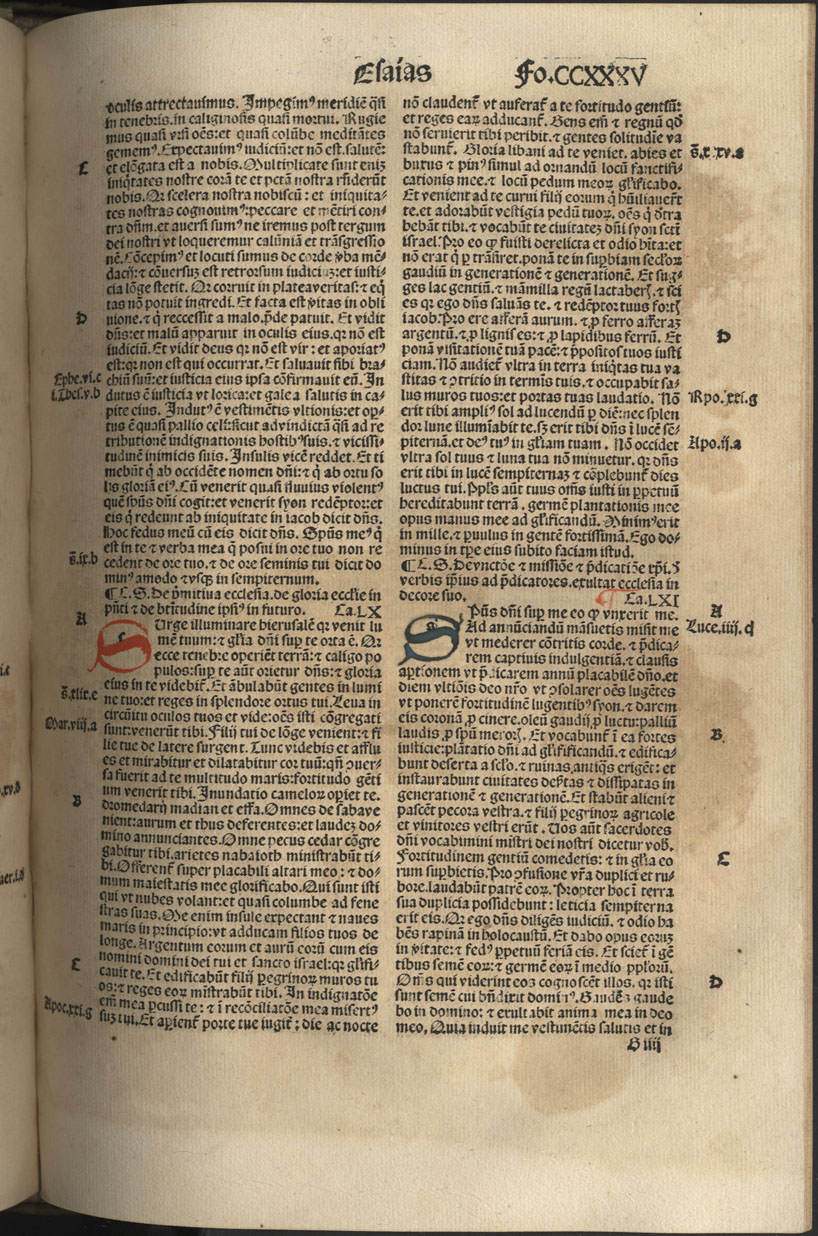 Esaias Fo.CCXXXV
oculis attrectauimus. Impegimꝰ meridie q̄si
in tenebris. in caliginosis quasi mortui. Rugie
mus quasi vrsi oēs: et quasi colūbe meditātes
gememꝰ. Expectauimꝰ iudiciū: et nō est. salutē:
et elōgata est a nobis. Multiplicate sunt eniz
iniq̄tates nostre corā te et pctā nostra rn̄derūt
nobis. Qr scelera nostra nobiscū: et iniquita-
tes nostras cognouimꝰ: peccare et mētiri con-
tra dn̄m. et auersi sumꝰ ne iremus post tergum
dei nostri vt loqueremur calūniā et trāsgressio
nē. Cōcepimꝰ et locuti sumus de corde v̄ba mē-
dacij: ⁊ cōuersuz est retrorsum iudiciuz: et iusti-
cia lōge stetit. Qr corruit in plateaveritas: ⁊ eq̄
tas nō potuit ingredi. Et facta est v̄itas in obli
uione. ⁊ q̄ reccessit a malo. p̄de patuit. Et vidit
dn̄s: et malū apparuit in oculis eius. qr nō est
iudiciū. Et vidit deus qr nō est vir: et aporiatꝰ
est: qr non est qui occurrat. Et saluauit sibi bra-
chiū suū: et iusticia eius ipsa cōfirmauit eū. In
dutus ē iusticia vt lorica: et galea salutis in ca-
pite eius. Indutꝰ ē vestimētis vltionis: et op̄-
tus ē quasi pallio celi: sicut advindictā q̄si ad re
tributionē indignationis hostibꝰ suis. ⁊ vicissi-
tudinē inimicis suis. Insulis vicē reddet. Et ti
mebūt q̄ ab occidēte nomen dn̄i: ⁊ q̄ ab ortu so
lis gloriā eiꝰ. Cū venerit quasi fluuius violentꝰ
quē sp̄us dn̄i cogit: et venerit syon redēptor: et
eis q̄ redeunt ab iniquitate in iacob dicit dn̄s.
Hoc fedus meū cū eis dicit dn̄s. Sp̄us meꝰ q̄
est in te ⁊ verba mea q̄ posui in ore tuo non re
cedent de ore tuo. ⁊ de ore seminis tui dicit do
minꝰ amodo ⁊ vsq̨ in sempiternum.
¶ C. S. De p̄mitiua ecclesia. de gloria ecclie in
pn̄ti ⁊ de btitudine ipsiꝰ in futuro. Ca. LX
SUrge illuminare hierusalē qr venit lu
mē tuum: ⁊ glia dn̄i sup̄ te orta ē. Qr
ecce tenebre operiēt terrā: ⁊ caligo po
pulos: sup̄ te aūt orietur dn̄s: ⁊ gloria
eius in te videbit̄. Et ābulabūt gentes in lumi
ne tuo: et reges in splendore ortus tui. Leua in
circuitu oculos tuos et vide: oēs isti cōgregati
sunt: venerūt tibi. Filij tui de lōge venient: ⁊ fi
lie tue de latere surgent. Tunc videbis et afflu
es et mirabitur et dilatabitur cor tuū: qn̄ ꝯuer-
sa fuerit ad te multitudo maris: fortitudo gēti
um venerit tibi. Inundatio cameloꝝ op̄iet te.
dromedarij madian et effa. Omnes de sabave
nient: aurum et thus deferentes: et laudez do-
mino annunciantes. Omne pecus cedar cōgre
gabitur tibi. arietes nabaioth ministrabūt ti-
bi. Offerent̄ super placabili altari meo: ⁊ do-
mum maiestatis mee glorificabo. Qui sunt isti
qui vt nubes volant: et quasi columbe ad fene
stras suas. Me enim insule expectant ⁊ naues
maris in principio: vt adducam filios tuos de
longe. Argentum eorum et aurū corū cum eis
nomini domini dei tui et sancto israel: qr gl̄ifi-
cauit te. Et edificabūt filij ꝑegrinoꝝ muros tu
os: ⁊ reges eoꝝ mīstrabūt tibi. In indignatōe
em̄ mea ꝑcussi te: ⁊ ī recōciliatōe mea misertꝰ
suz tui. Et aꝑient̄ porte tue iugit̄: die ac nocte
nō claudent̄ vt auferat̄ a te fortitudo gentiū:
et reges eaꝝ adducant̄. Gens em̄ ⁊ regnū qd̄
nō seruierit tibi peribit. ⁊ gentes solitudīe va
stabunt̄. Gloria libani ad te veniet. abies et
buxus ⁊ pinꝰ simul ad ornandū locū sanctifi-
cationis mee. ⁊ locū pedum meoꝝ gl̄ificabo.
Et venient ad te curui filij eorum q̄ hūiliauer̄t
te. et adorabūt vestigia pedū tuoꝝ. oēs q̄ dtra
hebāt tibi. ⁊ vocabūt te ciuitatez dn̄i syon scti
israel. Pro eo qꝫ fuisti derelicta et odio hīta: et
nō erat q̄ ꝑ te trāsiret. ponā te in supbiam secloꝝ
gaudiū in generationē ⁊ generationē. Et sug-
ges lac gentiū. ⁊ māmilla regū lactaberꝭ. ⁊ sci
es qr ego dn̄s saluās te. ⁊ redēptor tuus fortꝭ
iacob. Pro ere afferā aurum. ⁊ ꝓ ferro afferaz
argentū. ⁊ ꝓ lignis es: ⁊ ꝓ lapidibus ferrū. Et
ponā visitationē tuā pacē: ⁊ p̄positos tuos iusti
ciam. Nō audiet̄ vltra in terra iniq̄tas tua va
stitas ⁊ ꝯtritio in termīs tuis. ⁊ occupabit sa-
lus muros tuos: et portas tuas laudatio. Nō
erit tibi ampliꝰ sol ad lucendū ꝑ diē: nec splen
dor lune illumīabit te. sꝫ erit tibi dn̄s ī lucē sē-
piternā. et deꝰ tuꝰ in gl̄iam tuam. Nō occidet
vltra sol tuus ⁊ luna tua nō minuetur. qr dn̄s
erit tibi in lucē sempiternaz ⁊ cōplebunt̄ dies
luctus tui. Ppl̄s aūt tuus om̄s iusti in ꝑpetuū
hereditabunt terrā. germē plantationis mee
opus manus mee ad gl̄ificandū. Minimꝰ erit
in mille. ⁊ ꝑuulus in gentē fortissimā. Ego do-
minus in tp̄e eius subito faciam istud.
¶ C. S. De vnctōe ⁊ missiōe ⁊ p̄dicatiōe xp̄i. ⁊
verbis ip̄ius ad p̄dicatores. exultat ecclesia in
decore suo. Ca. LXI
SPūs dn̄i sup̄ me eo qꝫ vnxerit me.
Ad annūciandū māsuetis misit me
vt mederer cōtritis corde. ⁊ p̄dica-
rem captiuis indulgentiā. ⁊ clausis
aꝑtionem vt p̄dicarem annū placabilē dn̄o. et
diem vltiōis deo nr̄o vt ꝯsolarer oēs lugētes
vt ponerē fortitudinē lugentibꝰ syon. ⁊ darem
eis coronā ꝓ cinere. oleū gaudij ꝓ luctu: palliū
laudis ꝓ spū meroꝝ. Et vocabunt̄ ī ea fortes
iusticie: plātatio dn̄i ad gl̄ificandū. ⁊ edifica-
bunt deserta a sclo. ⁊ ruinas antiq̄s erigēt: et
instaurabunt ciuitates deẜtas ⁊ dissipatas in
generationē ⁊ generationē. Et stabūt alieni ⁊
pascēt pecora vestra. ⁊ filij ꝑegrinoꝝ agricole
et vinitores vestri erūt. Uos aūt sacerdotes
dn̄i vocabimini mīstri dei nostri dicetur vob̄.
Fortitudinem gentiū comedetis: ⁊ in gl̄ia eo
rum supbietis. Pro ꝯfusione vr̄a duplici et ru-
bore. laudabūt partē eoꝝ. Propter hoc ī terra
sua duplicia possidebunt: leticia sempiterna
erit eis. Qr ego dn̄s diligēs iudiciū. ⁊ odio ha
bēs rapinā in holocaustū. Et dabo opus eoruz
in v̄itate: ⁊ fedꝰ ꝑpetuū feriā eis. Et sciet̄ ī gē
tibus semē eoꝝ: ⁊ germē eoꝝ ī medio pploꝝ.
Om̄s qui viderint eos cognoscēt illos. qr isti
sunt semē cui bn̄dixit dominꝰ. Gaudēs gaude
bo in domino: ⁊ exultabit anima mea in deo
meo. Quia induit me vestimētis salutis et in
G iiij
C
D
Ephe.vi.c
i.Thes.v.b
s̄.ix.b
A
s̄.xlix.e
Mar.viij.a
B
C
Apoc.xxi.g
s̄.xxv.a
D
Apo.xxi.g
Apo.ij.a
A
Luce.iiij.d
B
C
D